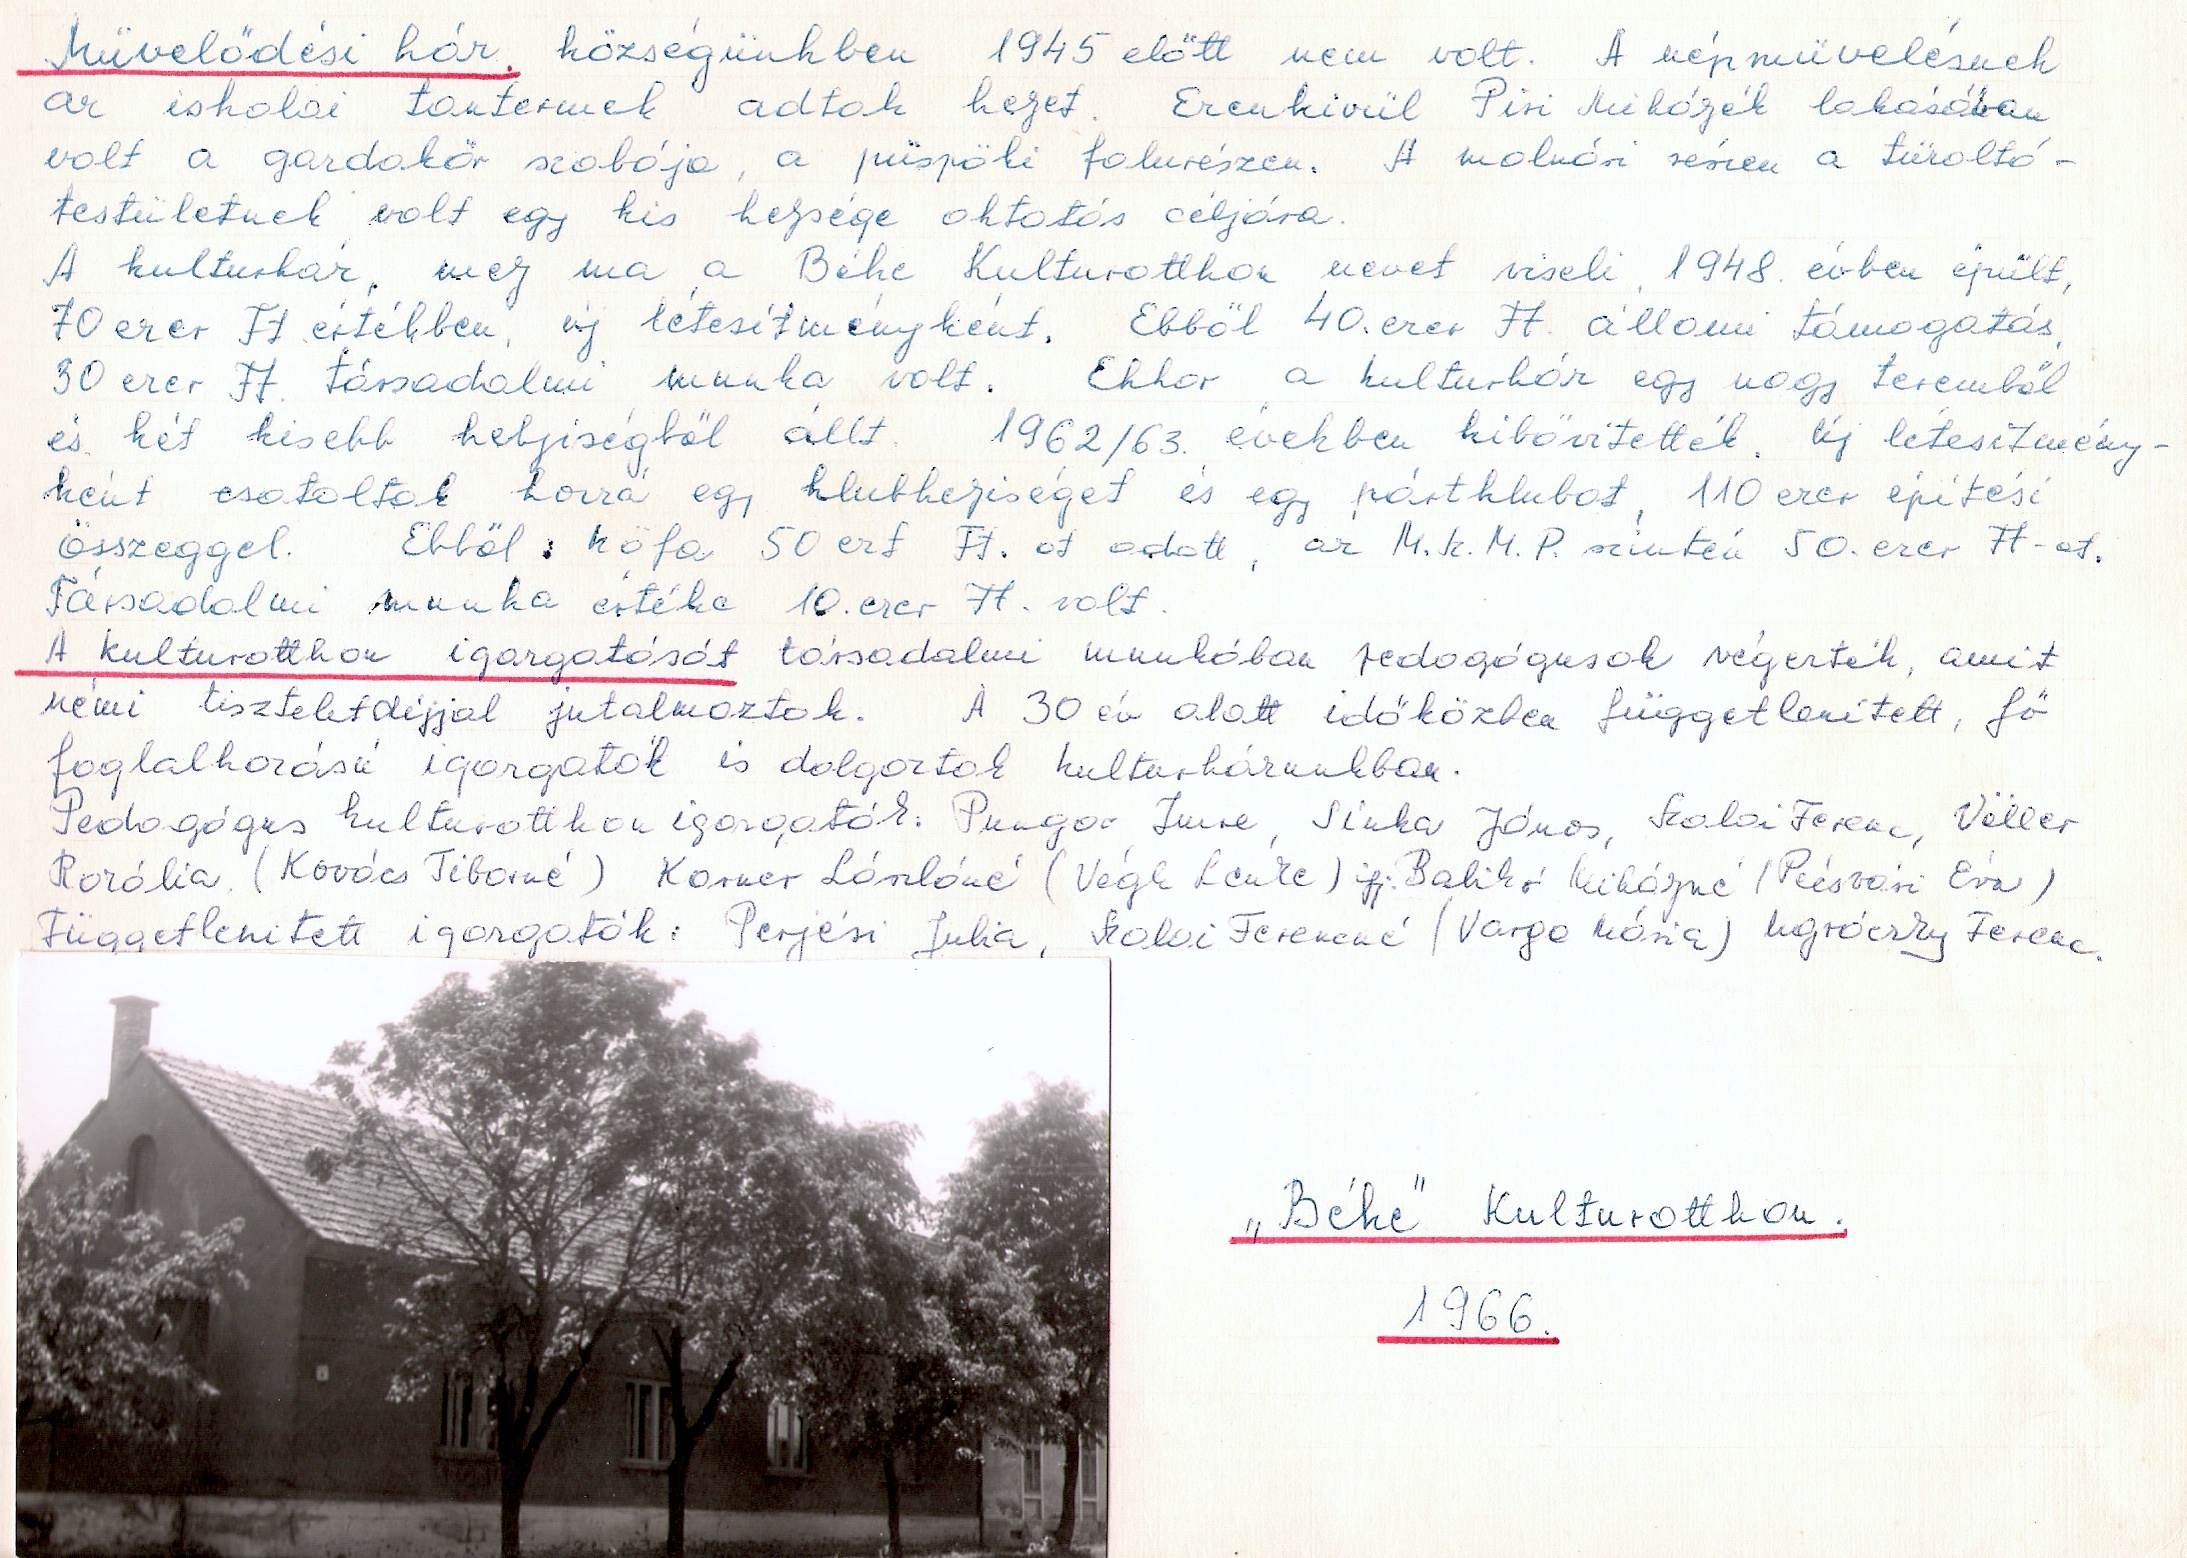 Művelődési ház, községünkben 1945 előtt nem volt. A népművelésnek
az iskolai tantermek adtak helyet. Ezenkivül Pisi Mihályék lakásában
volt a gazdakör szobája, a püspöki falurészen. A molnári részen a tűzoltó-
testületnek volt egy kis helysége oktatás céljára.
A kulturház, mely ma a Béke Kulturotthon nevet viseli, 1948. évben épült,
70 ezer Ft értékben, új létesítményként. Ebből 40. ezer Ft. állami támogatás,
30 ezer Ft. társadalmi munka volt. Ekkor a kulturház egy nagy teremből
és két kisebb helyiségből állt. 1962/63. években kibővitették. Új létesitmény-
ként csatoltak hozzá egy klubhelyiséget és egy pártklubot, 110 ezer épitési
összeggel. Ebből: köfa 50 ezf Ft. ot adott, az M.Sz.M.P. szintén 50. ezer Ft-ot.
Társadalmi munka értéke 10. ezer Ft. volt.
A kulturotthon igazgatását társadalmi munkában pedagógusok végezték, amit
némi tiszteletdijjal jutalmaztak. A 30 év alatt időközben függetlenitett, fő
foglalkozású igazgatók is dolgoztak kulturházunkban.
Pedagógus kulturotthon igazgatók: Pungor Imre, Sinka János, Szalai Ferenc, Völler
Rozália, (Kovács Tiborné) Korner Lászlóné (Végh Lenke) ifj. Balikó Mihályné (Pécsvári Éva)
Függetlenitett igazgatók: Perjési Julia, Szalai Ferencné (Varga Mária) Ugróczky Ferenc.
„Béke" Kulturotthon.
1966.